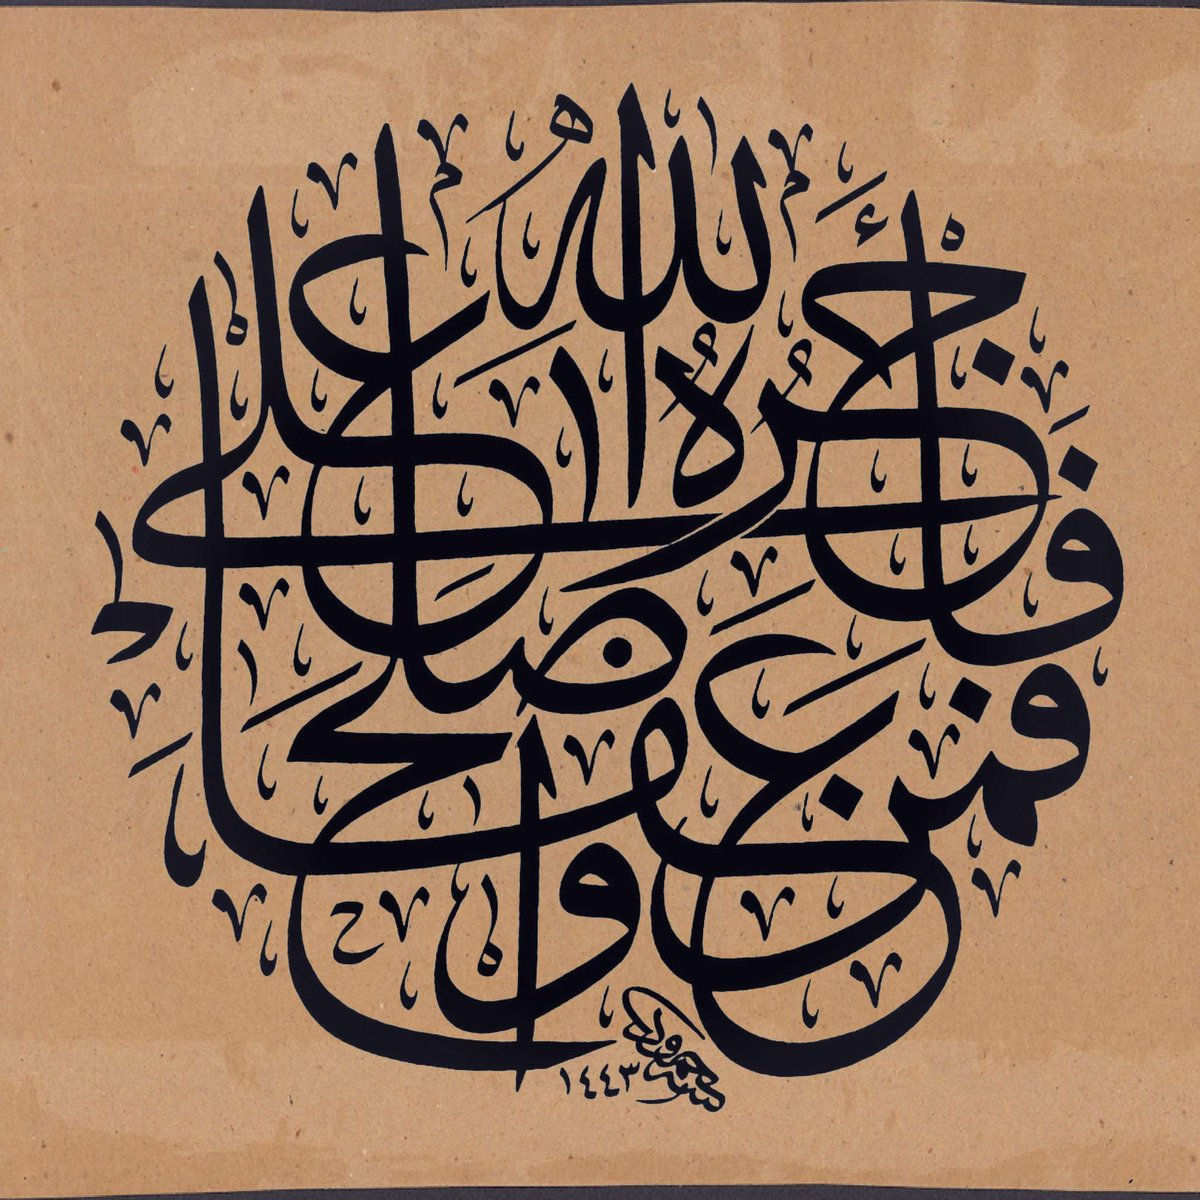 فَمَنْ عَفَا وَأَصْلَحَ فَأَجْرُهُ عَلَى اللَّهِ
١٤٤٣